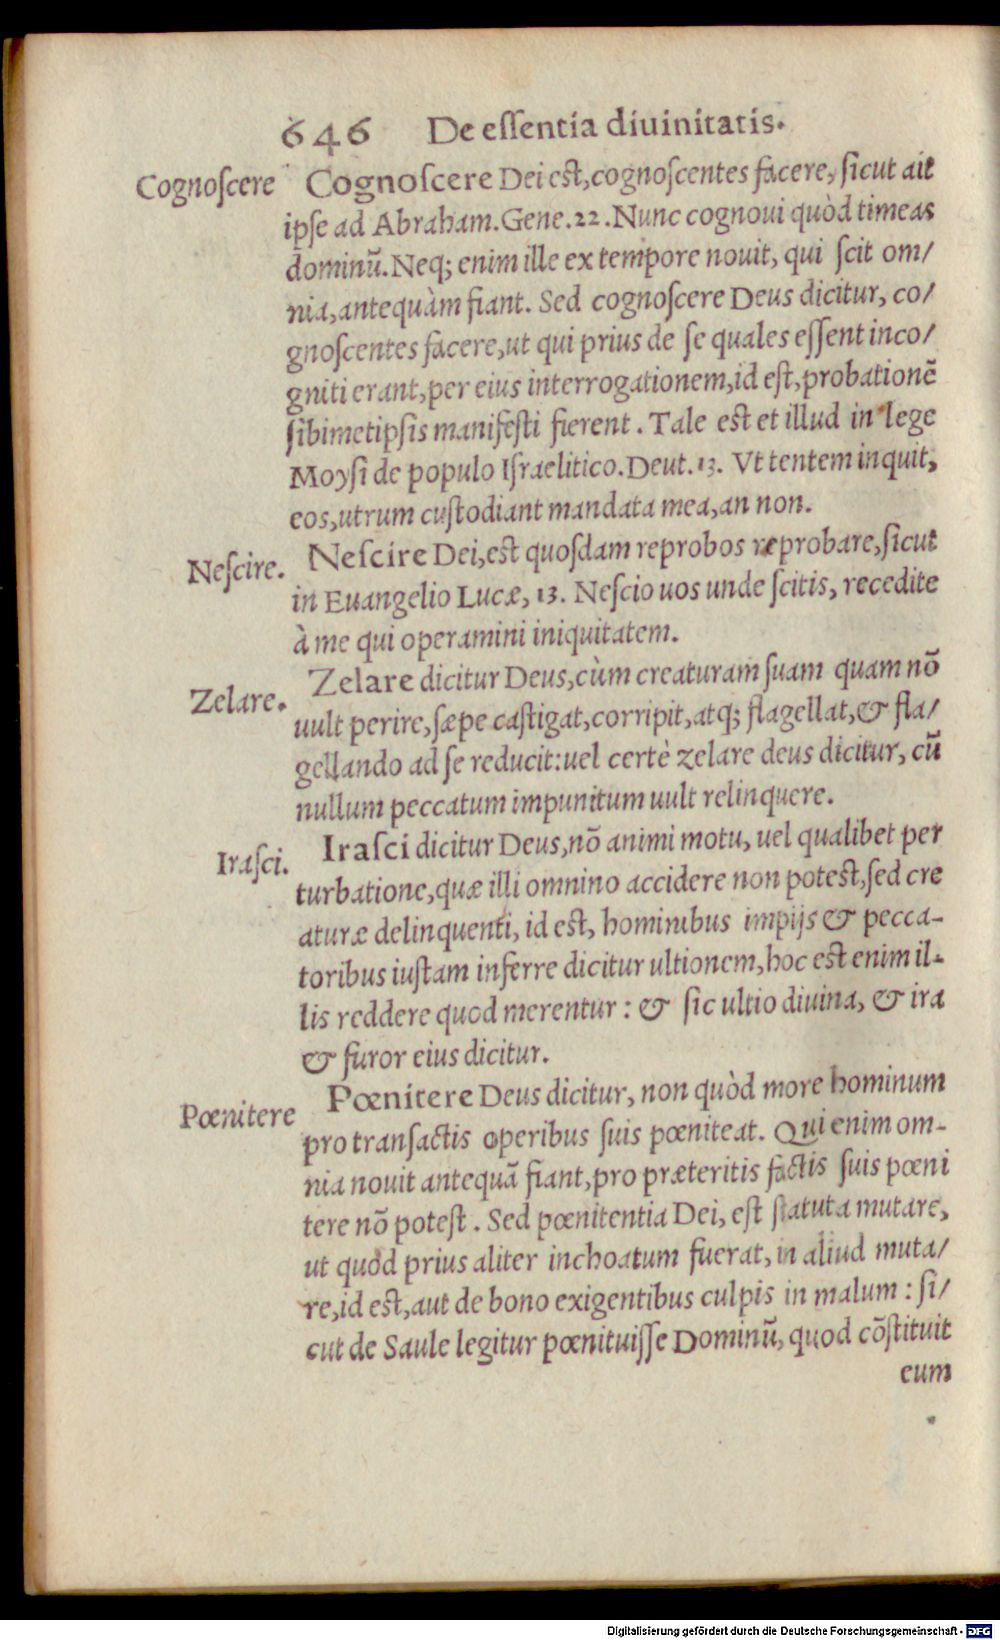 646 De eſſentia diuinitatis.
Cognoſcere Cognoſcere Dei est, cognoſcentes facere, ſicut ait
ipſe ad Abraham. Gene. 22. Nunc cognoui quòd timeas
dominū. Neq; enim ille ex tempore nouit, qui ſcit om/
nia, antequàm fiant. Sed cognoſcere Deus dicitur, co/
gnoſcentes facere, ut qui prius de ſe quales eſſent inco/
gniti erant, per eius interrogationem, id eſt, probationē
ſibimetipſis manifeſti fierent. Tale est et illud in lege
Moyſi de populo Iſraelitico. Deut. 13. Vt tentem inquit,
eos, utrum cuſtodiant mandata mea, an non.
Neſcire. Neſcire Dei, est quoſdam reprobos reprobare, ſicut
in Euangelio Lucæ, 13. Neſcio uos unde ſcitis, recedite
à me qui operamini iniquitatem.
Zelare. Zelare dicitur Deus, cùm creaturam ſuam quam nō
uult perire, ſæpe caſtigat, corripit, atq; flagellat, & fla/
gellando ad ſe reducit: uel certè zelare deus dicitur, cū
nullum peccatum impunitum uult relinquere.
Iraſci. Iraſci dicitur Deus, nō animi motu, uel qualibet per
turbatione, quæ illi omnino accidere non potest, ſed cre
aturæ delinquenti, id est, hominibus impijs & pecca-
toribus iuſtam inferre dicitur ultionem, hoc est enim il-
lis reddere quod merentur: & ſic ultio diuina, & ira
& furor eius dicitur.
Pœnitere Pœnitere Deus dicitur, non quòd more hominum
pro tranſactis operibus ſuis pœniteat. Qui enim om-
nia nouit antequā fiant, pro præteritis factis ſuis pœni
tere nō poteſt. Sed pœnitentia Dei, eſt ſtatuta mutare,
ut quod prius aliter inchoatum fuerat, in aliud muta/
re, id est, aut de bono exigentibus culpis in malum: ſi/
cut de Saule legitur pœnituiſſe Dominū, quod cōſtituit
eum
Digitalisierung gefördert durch die Deutsche Forschungsgemeinschaft - DFG